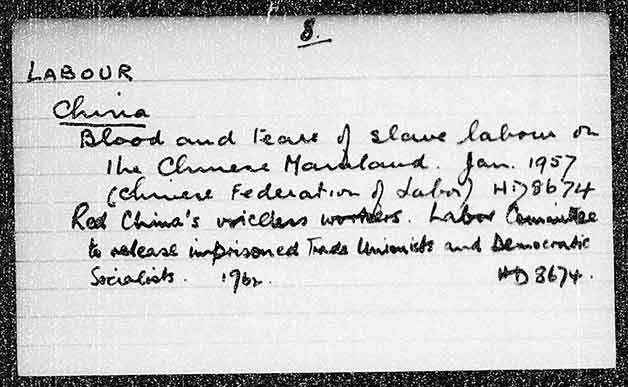 8.
LABOUR
China
Blood and Tears of slave labour on
the Chinese Mainland. Jan. 1957
(Chinese Federation of Labor) HD8674
Red China's voiceless workers. Labor Committee
to release imprisoned Trade Unionists and Democratic
Socialists. HD8674.